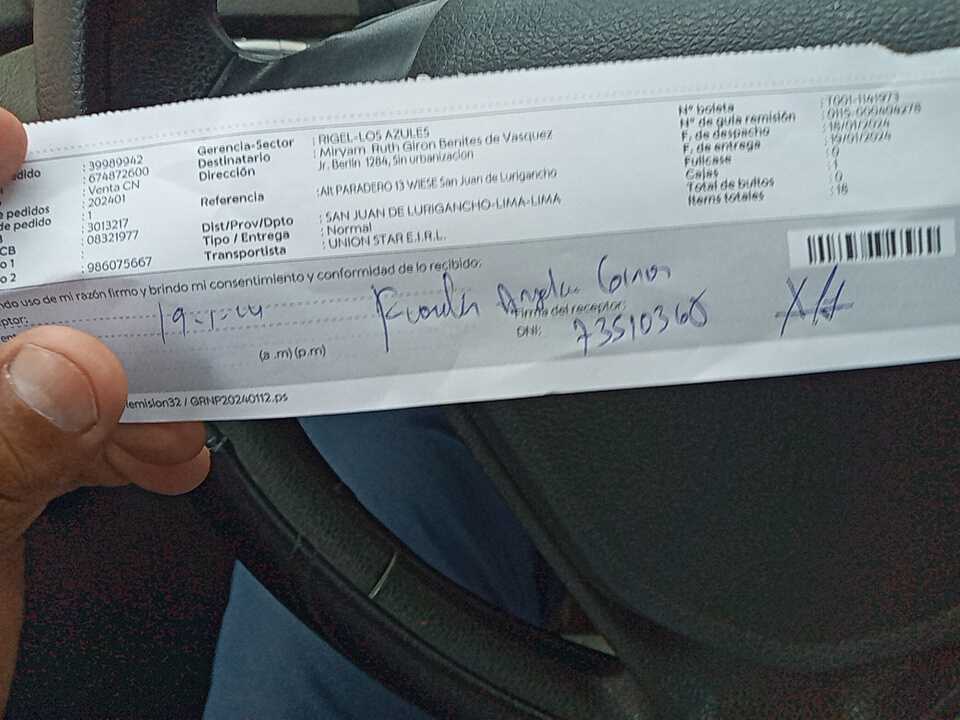 edido : 39989942
: 674872600
: Venta CN
: 202401
e pedidos : 1
de pedido : 3013217
: 08321977
CB
o 1 : 986075667
o 2
Gerencia-Sector : RIGEL-LOS AZULES
Destinatario : Miryam Ruth Giron Benites de Vasquez
Dirección : Jr. Berlin 1284, Sin urbanizacion
Referencia : Alt PARADERO 13 WIESE San Juan de Lurigancho
Dist/Prov/Dpto : SAN JUAN DE LURIGANCHO-LIMA-LIMA
Tipo / Entrega : Normal
Transportista : UNION STAR E.I.R.L.
N° boleta : T001-1141973
N° de guia remisión : 0115-000404278
F. de despacho : 18/01/2024
F. de entrega : 19/01/2024
Fullcase : 0
Cajas : 1
Total de bultos : 0
Items totales : 18
ndo uso de mi razón firmo y brindo mi consentimiento y conformidad de lo recibido:
ptor:
(a .m) (p.m)
Firma del receptor:
DNI: 73510360
emision32 / GRNP20240112.ps